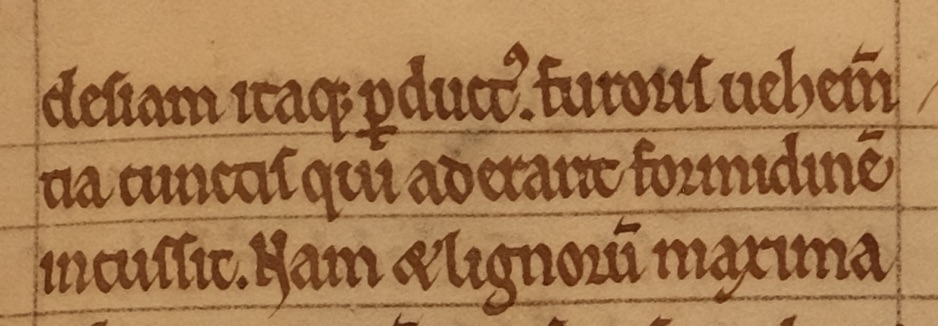 clesiam itaqꝫ ꝑduct᷒. furoris uehem̄
tia cunctis qui aderant formidinē
incussit. Nam & lignoꝝū maxima